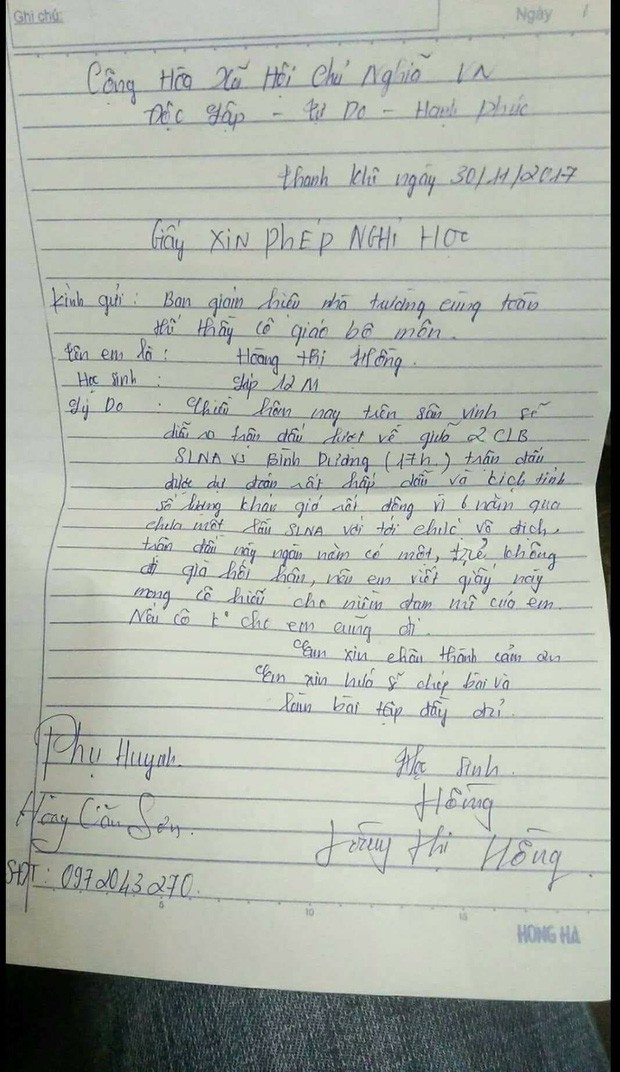 Ghi chú:
Ngày /
Cộng Hòa Xã Hội Chủ Nghĩa VN
Độc Lập - Tự Do - Hạnh phúc
thanh khê ngày 30/11/2017
Giấy XIN PHÉP NGHỈ HỌC
kính gửi : Ban giám hiệu nhà trường cùng toàn
thể thầy cô giáo bộ môn.
tên em là : Hoàng thị Hồng.
Học sinh : Lớp 12M
Lý Do : Chiều hôm nay trên sân vinh sẽ
diễn ra trận đấu lượt về giữa 2 CLB
SLNA vs Bình Dương (17h.) trận đấu
được dự đoán rất hấp dẫn và kịch tính
số lượng khán giả rất đông vì 6 năm qua
chưa một lần SLNA với tới chức vô địch,
trận đấu này ngàn năm có một, trẻ không
đi già hối hận, nên em viết giấy này
mong cô hiểu cho niềm đam mê của em.
Nếu cô k° cho em cũng đi.
Em xin chân thành cảm ơn
Em xin hứa sẽ chép bài và
làm bài tập đầy đủ.
Phụ Huynh. Học sinh.
Hồng
Sơn. thị Hồng.
SĐT: 0972043270.
5 10 15
HONG HA